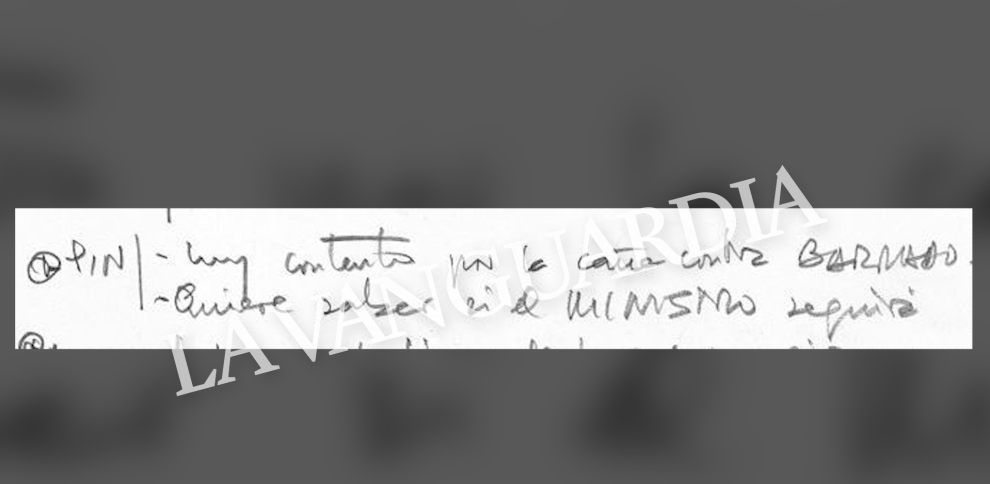 PIN - muy contento por la caña contra BARNADO.
- Quiere saber si el MINISTRO seguirá
LA VANGUARDIA